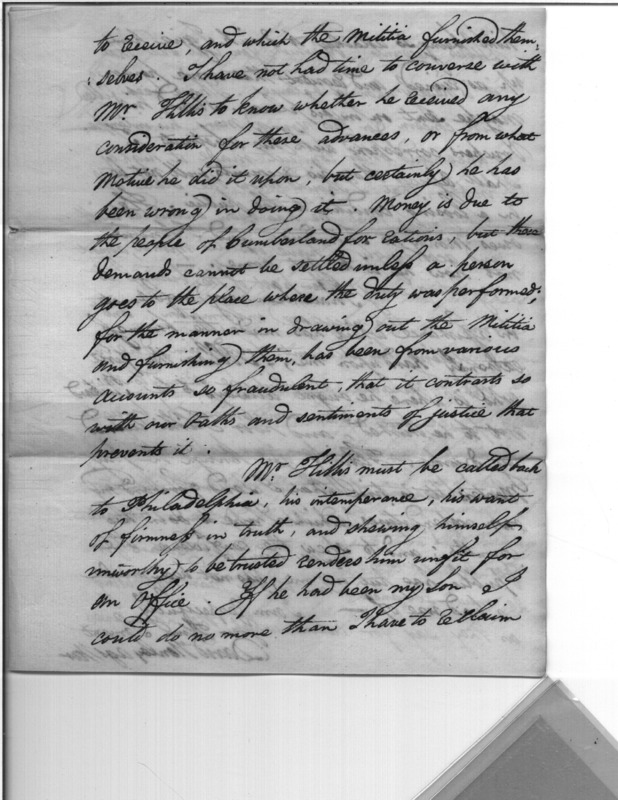 to receive, and which the Militia furnished them-
selves. I have not had time to converse with
Mr. Hillis to know whether he received any
consideration for these advances, or from what
Motive he did it upon, but certainly he has
been wrong in doing it. Money is due to
the people of Cumberland for rations, but these
demands cannot be settled unless a person
goes to the place where the duty was performed;
for the manner in drawing out the Militia
and furnishing them, has been from various
accounts so fraudulent, that it contrasts so
with our Oaths and sentiments of justice that
prevents it.
Mr. Hillis must be called back
to Philadelphia, his intemperance, his want
of firmness in truth, and shewing himself
unworthy to be trusted renders him unfit for
an Office. If he had been my Son I
could do no more than I have to reclaim